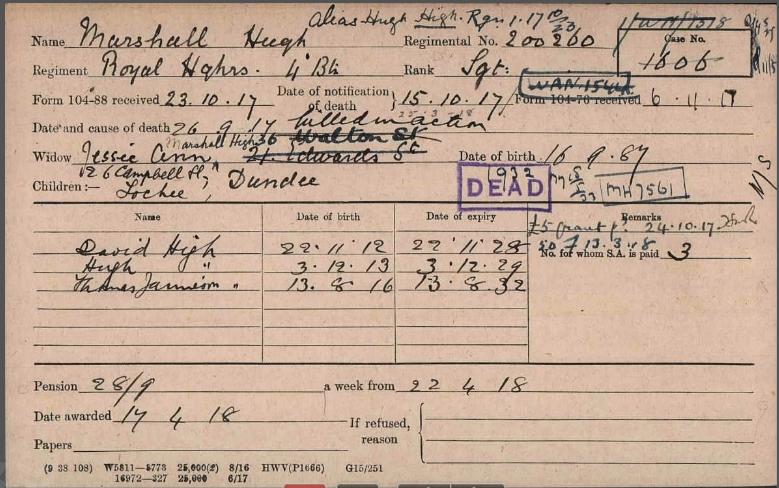 Alias Hugh High. Rgn. 1.17
Name Marshall Hugh
Regimental No. 200260
Case No. 1606
Regiment Royal Hghrs. 4 Btn
Rank Sgt:
Form 104-88 received 23.10.17
Date of notification of death 15.10.17
Form 104-76 received 6 11 17
WAN 154
Date and cause of death 26 9 17 killed in action
Marshall High 36 Walton St
Widow Jessie Ann, 21. Edwards St
Date of birth 16 9. 87
126 Campbell St,
Children:— Lochee, Dundee
1932
DEAD
MH7561
N/S
Name Date of birth Date of expiry Remarks
£5 grant 24.10.17
David High 22.11.12 22.11.28
13.3.18
No. for whom S.A. is paid 3
Hugh " 3.12.13 3.12.29
Thomas Jamieson " 13.8 16 13.8.32
Pension 28/9 a week from 22 4 18
Date awarded 17 4 18
If refused, reason
Papers
(9 38 108) W5811—5773 25,000(2) 8/16 HWV(P1666) G15/251
16972—327 25,000 6/17